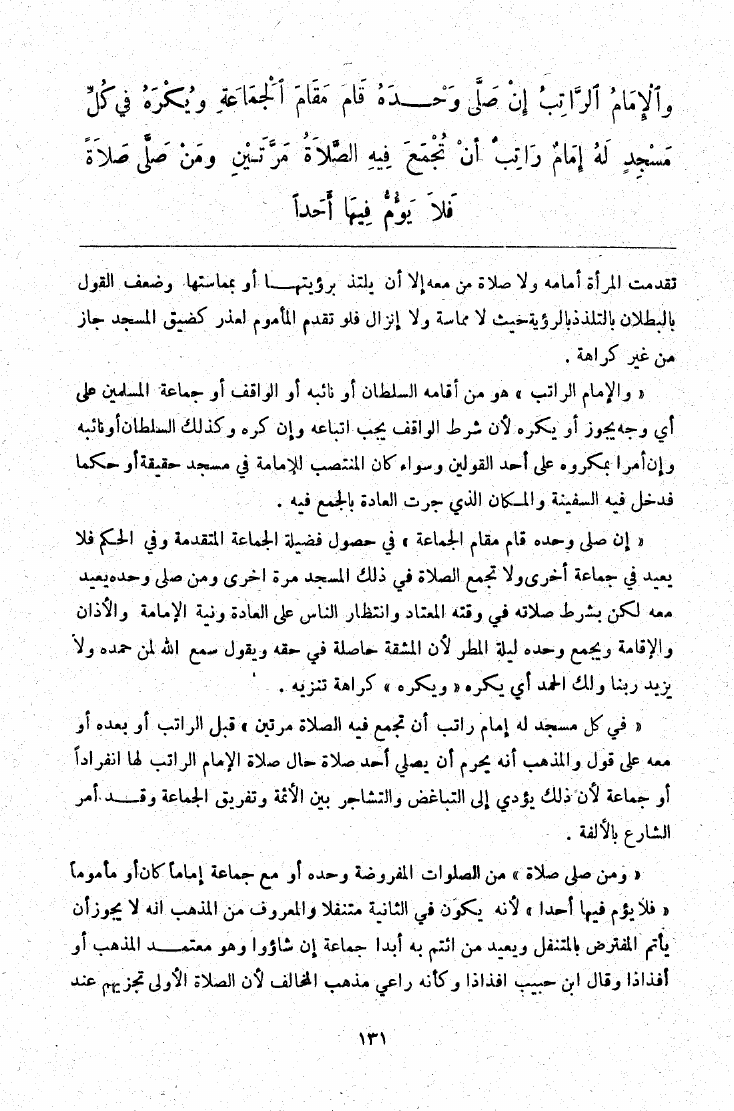 وَٱلْإِمَامُ ٱلرَّاتِبُ إِنْ صَلَّى وَحْـــدَهُ قَامَ مَقَامَ ٱلْجَمَاعَةِ وَيُكْرَهُ فِي كُلِّ
مَسْجِدٍ لَهُ إِمَامٌ رَاتِبٌ أَنْ تُجْمَعَ فِيهِ الصَّلاَةُ مَرَّتَيْنِ وَمَنْ صَلَّى صَلاَةً
فَلاَ يَؤُمُّ فِيهَا أَحَداً
تقدمت المرأة أمامه ولا صلاة من معه إلا أن يلتذ برؤيتهـــا أو بمماستها وضعف القول
بالبطلان بالتلذذ بالرؤية حيث لا مماسة ولا إنزال فلو تقدم المأموم لعذر كضيق المسجد جاز
من غير كراهة .
« والإمام الراتب » هو من أقامه السلطان أو نائبه أو الواقف أو جماعة المسلمين على
أي وجه يجوز أو يكره لأن شرط الواقف يجب اتباعه وإن كره وكذلك السلطان أو نائبه
وإن أمرا بمكروه على أحد القولين وسواء كان المنتصب للإمامة في مسجد حقيقة أو حكما
فدخل فيه السفينة والمكان الذي جرت العادة بالجمع فيه .
« إن صلى وحده قام مقام الجماعة » في حصول فضيلة الجماعة المتقدمة وفي الحكم فلا
يعيد في جماعة أخرى ولا تجمع الصلاة في ذلك المسجد مرة اخرى ومن صلى وحده يعيد
معه لكن بشرط صلاته في وقته المعتاد وانتظار الناس على العادة ونية الإمامة والأذان
والإقامة ويجمع وحده ليلة المطر لأن المشقة حاصلة في حقه ويقول سمع الله لمن حمده ولا
يزيد ربنا ولك الحمد أي يكره « ويكره » كراهة تنزيه .
« في كل مسجد له إمام راتب أن تجمع فيه الصلاة مرتين » قبل الراتب أو بعده أو
معه على قول والمذهب أنه يحرم أن يصلي أحد صلاة حال صلاة الإمام الراتب لها انفراداً
أو جماعة لأن ذلك يؤدي إلى التباغض والتشاجر بين الأئمة وتفريق الجماعة وقـــد أمر
الشارع بالألفة .
« ومن صلى صلاة » من الصلوات المفروضة وحده أو مع جماعة إماماً كان أو مأموماً
« فلا يؤم فيها أحدا » لأنه يكون في الثانية متنفلا والمعروف من المذهب انه لا يجوز أن
يأتم المفترض بالمتنفل ويعيد من ائتم به أبدا جماعة إن شاؤوا وهو معتمـــد المذهب أو
أفذاذا وقال ابن حبيب افذاذا وكأنه راعي مذهب المخالف لأن الصلاة الأولى تجزيهم عند
١٣١